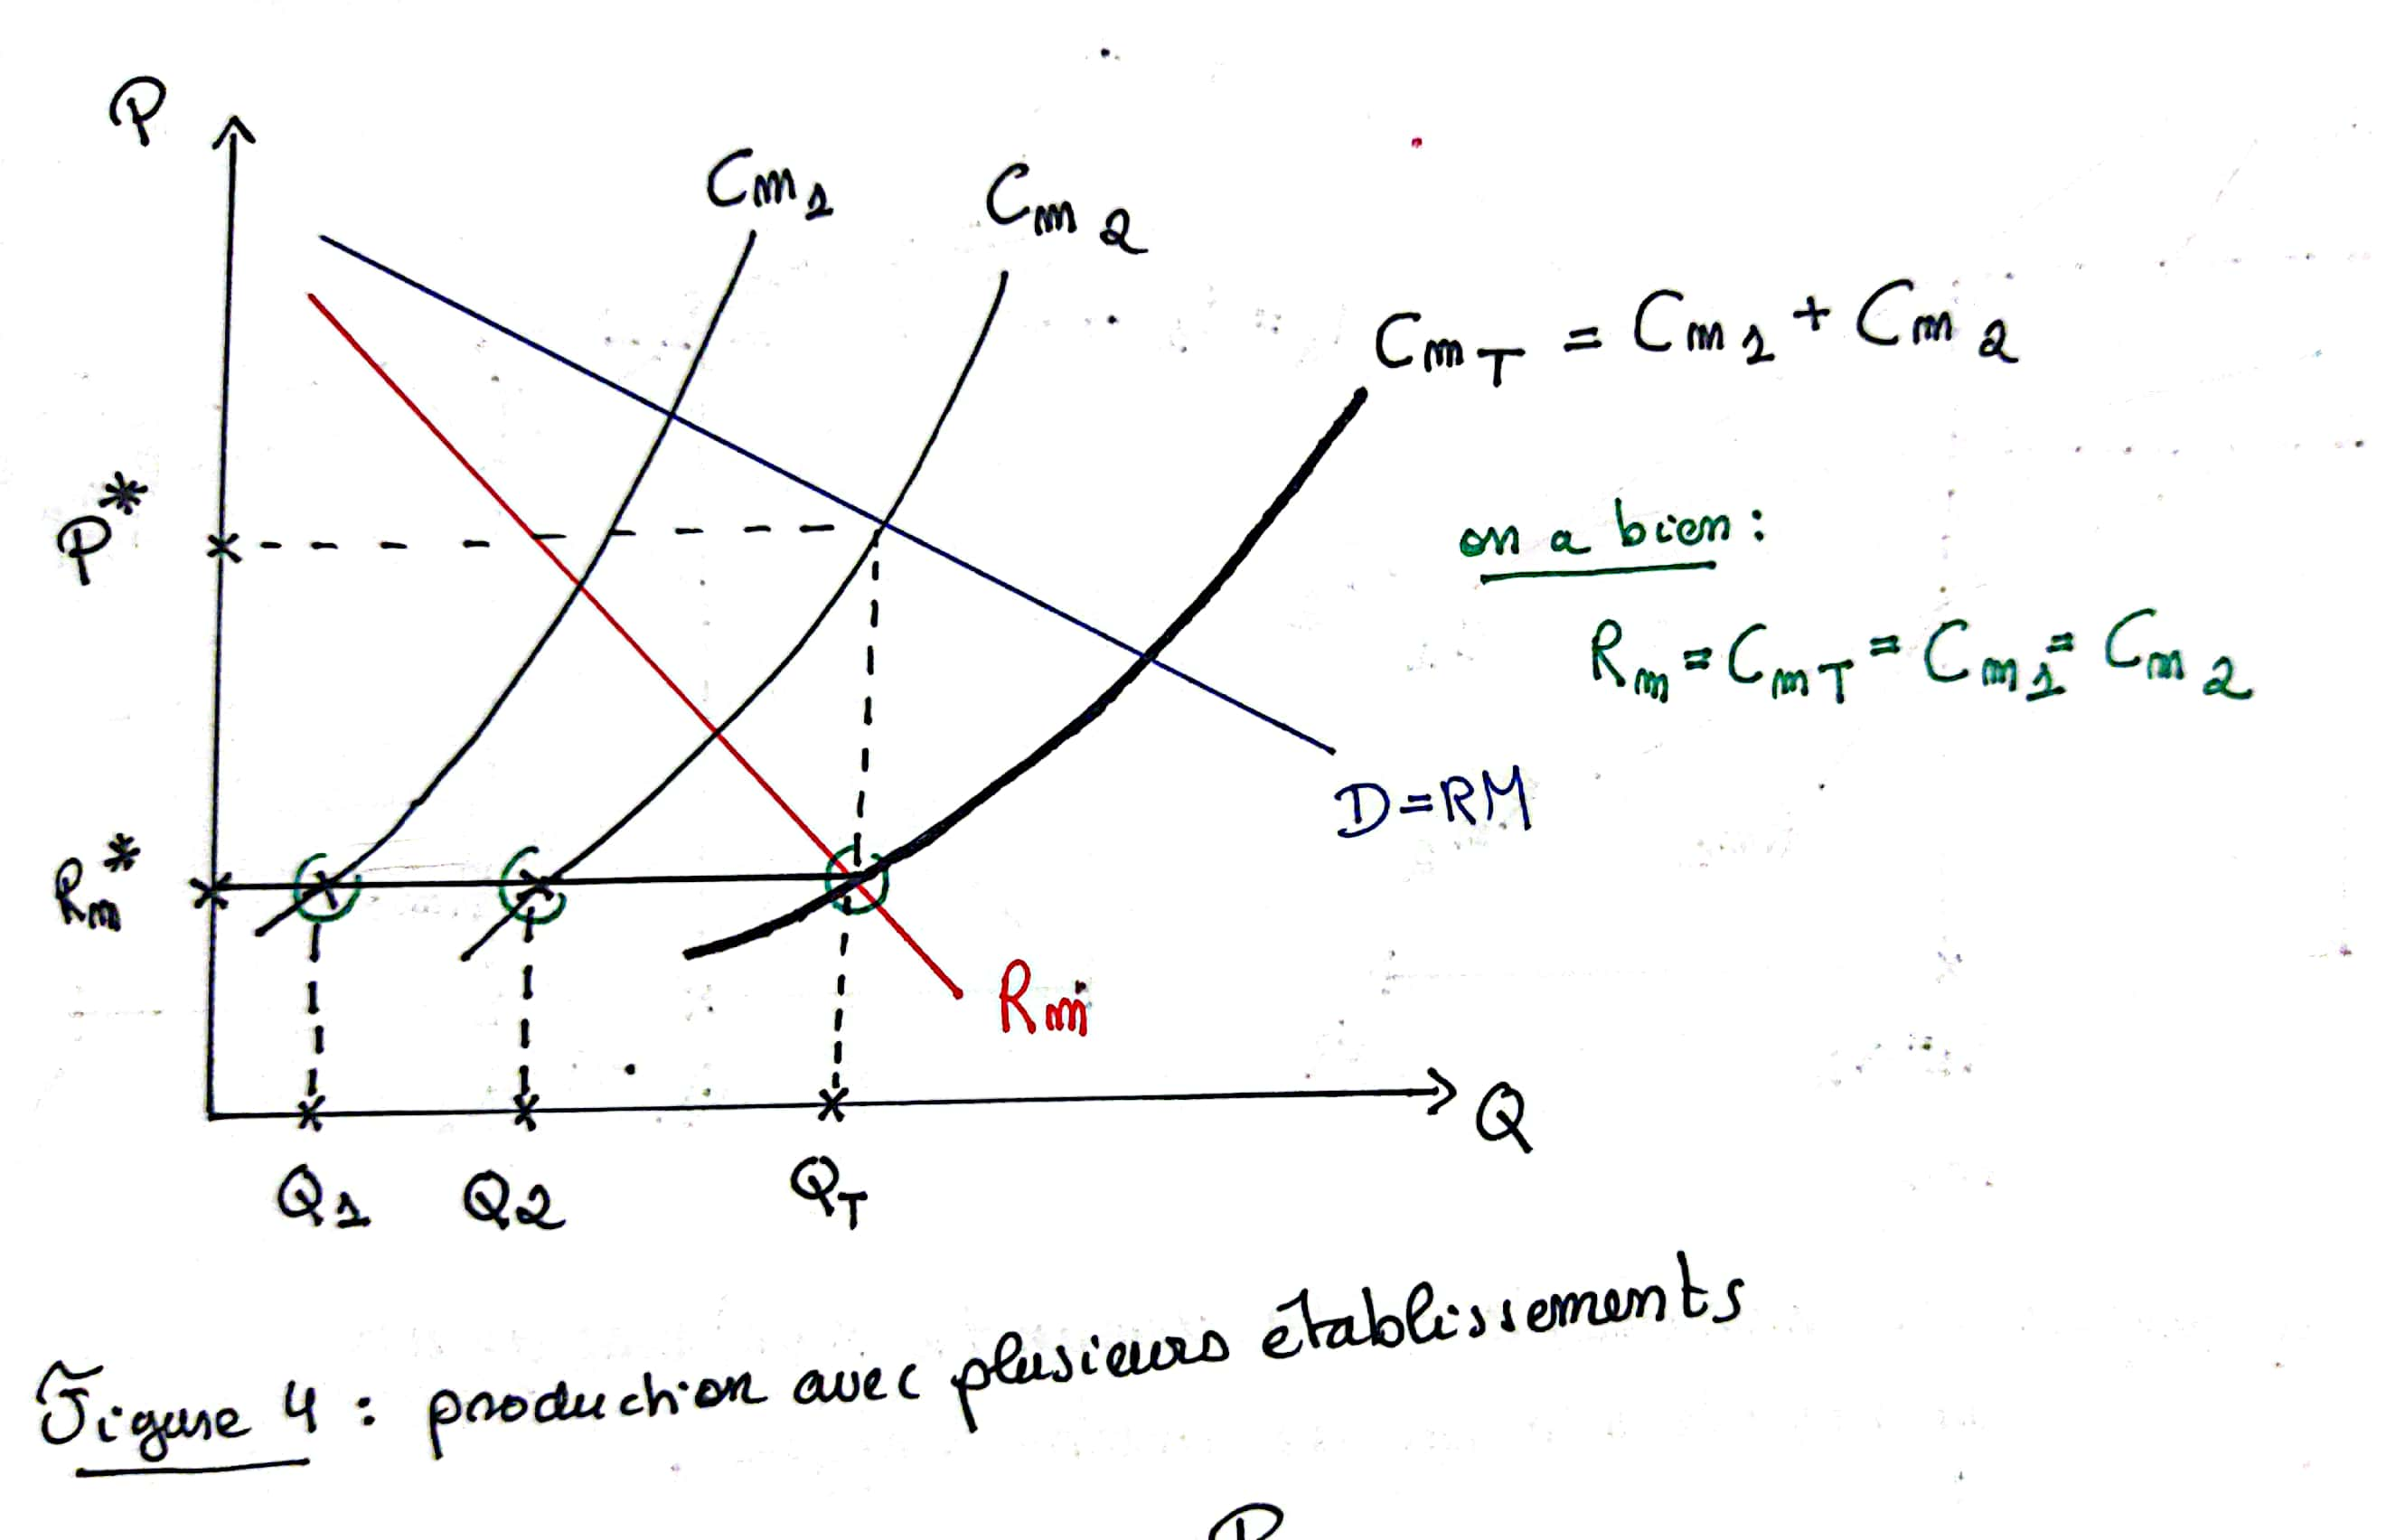 P
Cm1
Cm2
CmT = Cm1 + Cm2
P*
on a bien :
Rm = CmT = Cm1 = Cm2
D=RM
Rm*
Rm
Q
Q1 Q2 QT
Figure 4 : production avec plusieurs établissements